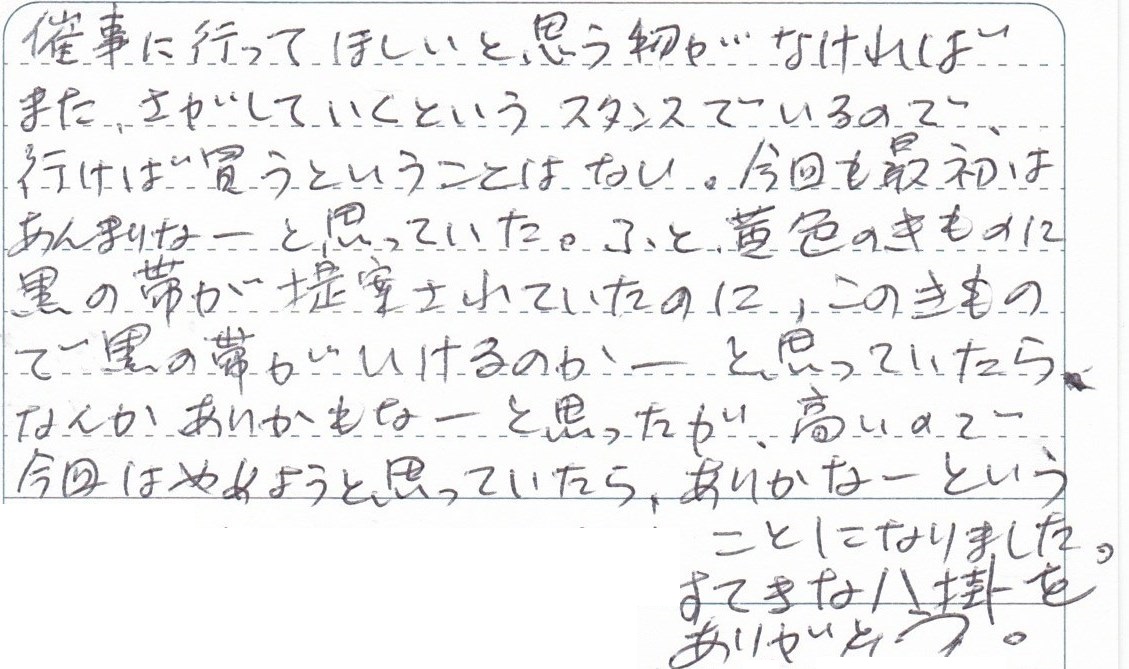 催事に行ってほしいと思う物がなければ
また、さがしていくというスタンスでいるので、
行けば買うということはない。今回も最初は
あんまりなーと思っていた。ふと、黄色のきものに
黒の帯が提案されていたのに、このきもの
で黒の帯がいけるのかーと思っていたら、
なんかありかもなーと思ったが、高いので
今回はやめようと思っていたら、ありかなーという
ことになりました。
すてきな八掛を
ありがとう。